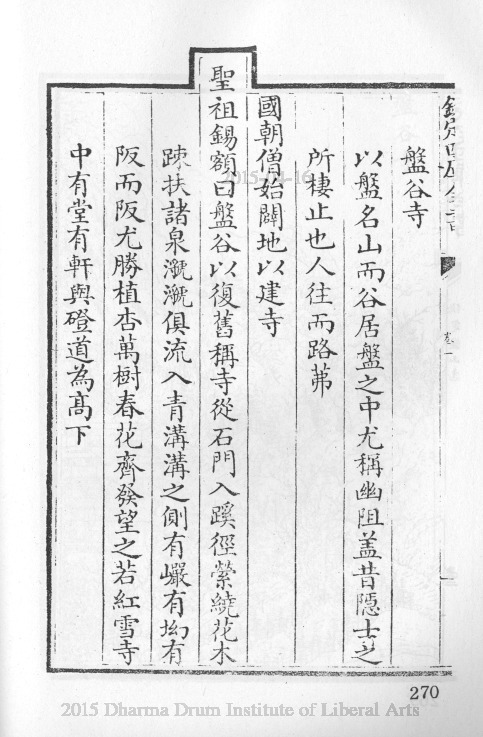 欽定四庫全書
卷一
盤谷寺
以盤名山而谷居盤之中尤稱幽阻蓋昔隱士之
所棲止也人往而路茀
國朝僧始闢地以建寺
聖祖錫額曰盤谷以復舊稱寺從石門入蹊徑縈繞花木
踈扶諸泉㶁㶁俱流入青溝溝之側有巗有坳有
阪而阪尤勝植杏萬樹春花齊發望之若紅雪寺
中有堂有軒與磴道為高下
270
2015 Dharma Drum Institute of Liberal Arts